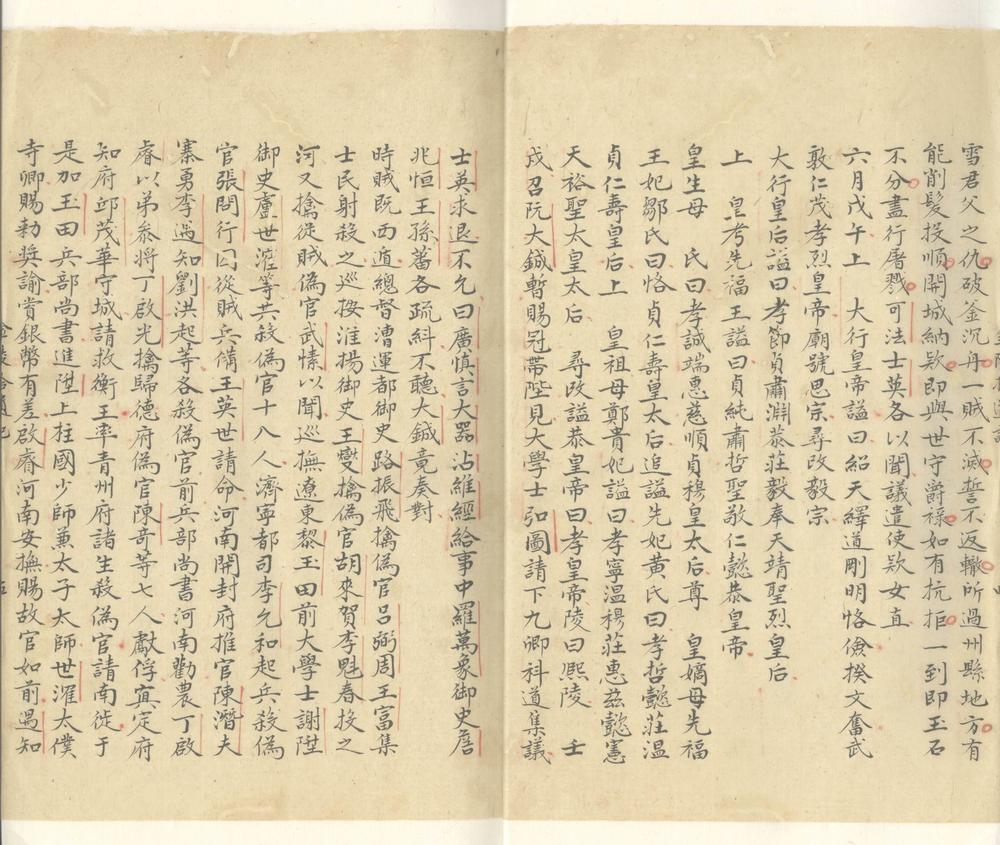 雪君父之仇破釜沉舟一賊不滅誓不返轍所過州縣地方有
能削髮投順開城納欵即與世守爵祿如有抗拒一到即玉石
不分盡行屠戮可法士英各以聞議遣使欵女直
六月戊午上　大行皇帝謚曰紹天繹道剛明恪儉揆文奮武
敦仁茂孝烈皇帝廟號思宗尋改毅宗
大行皇后謚曰孝節貞肅淵恭莊毅奉天靖聖烈皇后
上　皇考先福王謚曰貞純肅哲聖敬仁懿恭皇帝
皇生母　氏曰孝誠端惠慈順貞穆皇太后尊　皇嫡母先福
王妃鄒氏曰恪貞仁壽皇太后追謚先妃黃氏曰孝哲懿莊溫
貞仁壽皇后上　皇祖母鄭貴妃謚曰孝寧溫穆莊惠慈懿憲
天裕聖太皇太后　尋改謚恭皇帝曰孝皇帝陵曰熙陵　壬
戌召阮大鋮暫賜冠帶陛見大學士弘圖請下九卿科道集議
士英求退不允曰廣慎言大器沾維經給事中羅萬象御史詹
兆恒王孫蕃各疏糾不聽大鋮竟奏對
時賊既西遁總督漕運都御史路振飛擒偽官呂弼周王富集
士民射殺之巡按淮揚御史王燮擒偽官胡來賀李魁春投之
河又擒從賊偽官武愫以聞巡撫遼東黎玉田前大學士謝陞
御史盧世㴶等共殺偽官十八人濟寧都司李允和起兵殺偽
官張問行囚從賊兵備王英世請命河南開封府推官陳潛夫
寨勇李遇知劉洪起等各殺偽官前兵部尚書河南勸農丁啟
睿以弟叅將丁啟光擒歸德府偽官陳奇等七人獻俘寘定府
知府邱茂華守城請救衡王率青州府諸生殺偽官請南徙于
是加玉田兵部尚書進陞上柱國少師兼太子太師世㴶太僕
寺卿賜勅奬諭賞銀幣有差啟睿河南安撫賜故官如前遇知